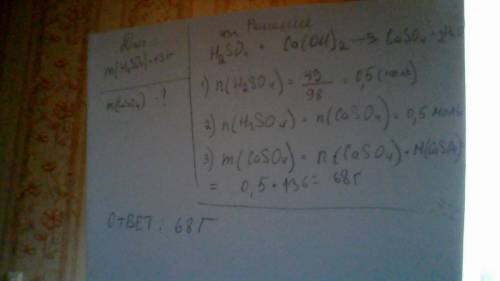 Дано:
m(H₂SO₄) = 49 г
m(CaSO₄) - ?
Решение
H₂SO₄ + Ca(OH)₂ → CaSO₄ + 2H₂O
1) n(H₂SO₄) = 49/98 = 0,5 (моль)
2) n(H₂SO₄) = n(CaSO₄) = 0,5 моль
3) m(CaSO₄) = n(CaSO₄) · M(CaSO₄)
= 0,5 · 136 = 68 г
ОТВЕТ: 68 Г